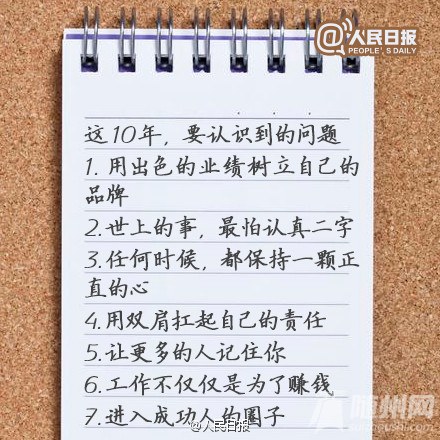 @人民日报
PEOPLE'S DAILY
这10年，要认识到的问题
1. 用出色的业绩树立自己的
品牌
2.世上的事，最怕认真二字
3.任何时候，都保持一颗正
直的心
4.用双肩扛起自己的责任
5.让更多的人记住你
6.工作不仅仅是为了赚钱
7.进入成功人的圈子
@人民日报
随州网